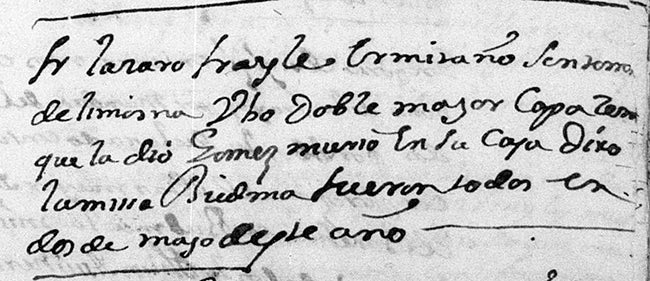 fr lazaro frayle Ermitaño Senterro
de limosna Vbo Doble mayor Capa
que la dió Gomez murió En su Casa Dixo
la missa Biedma fueron todos En
dos de mayo deste año